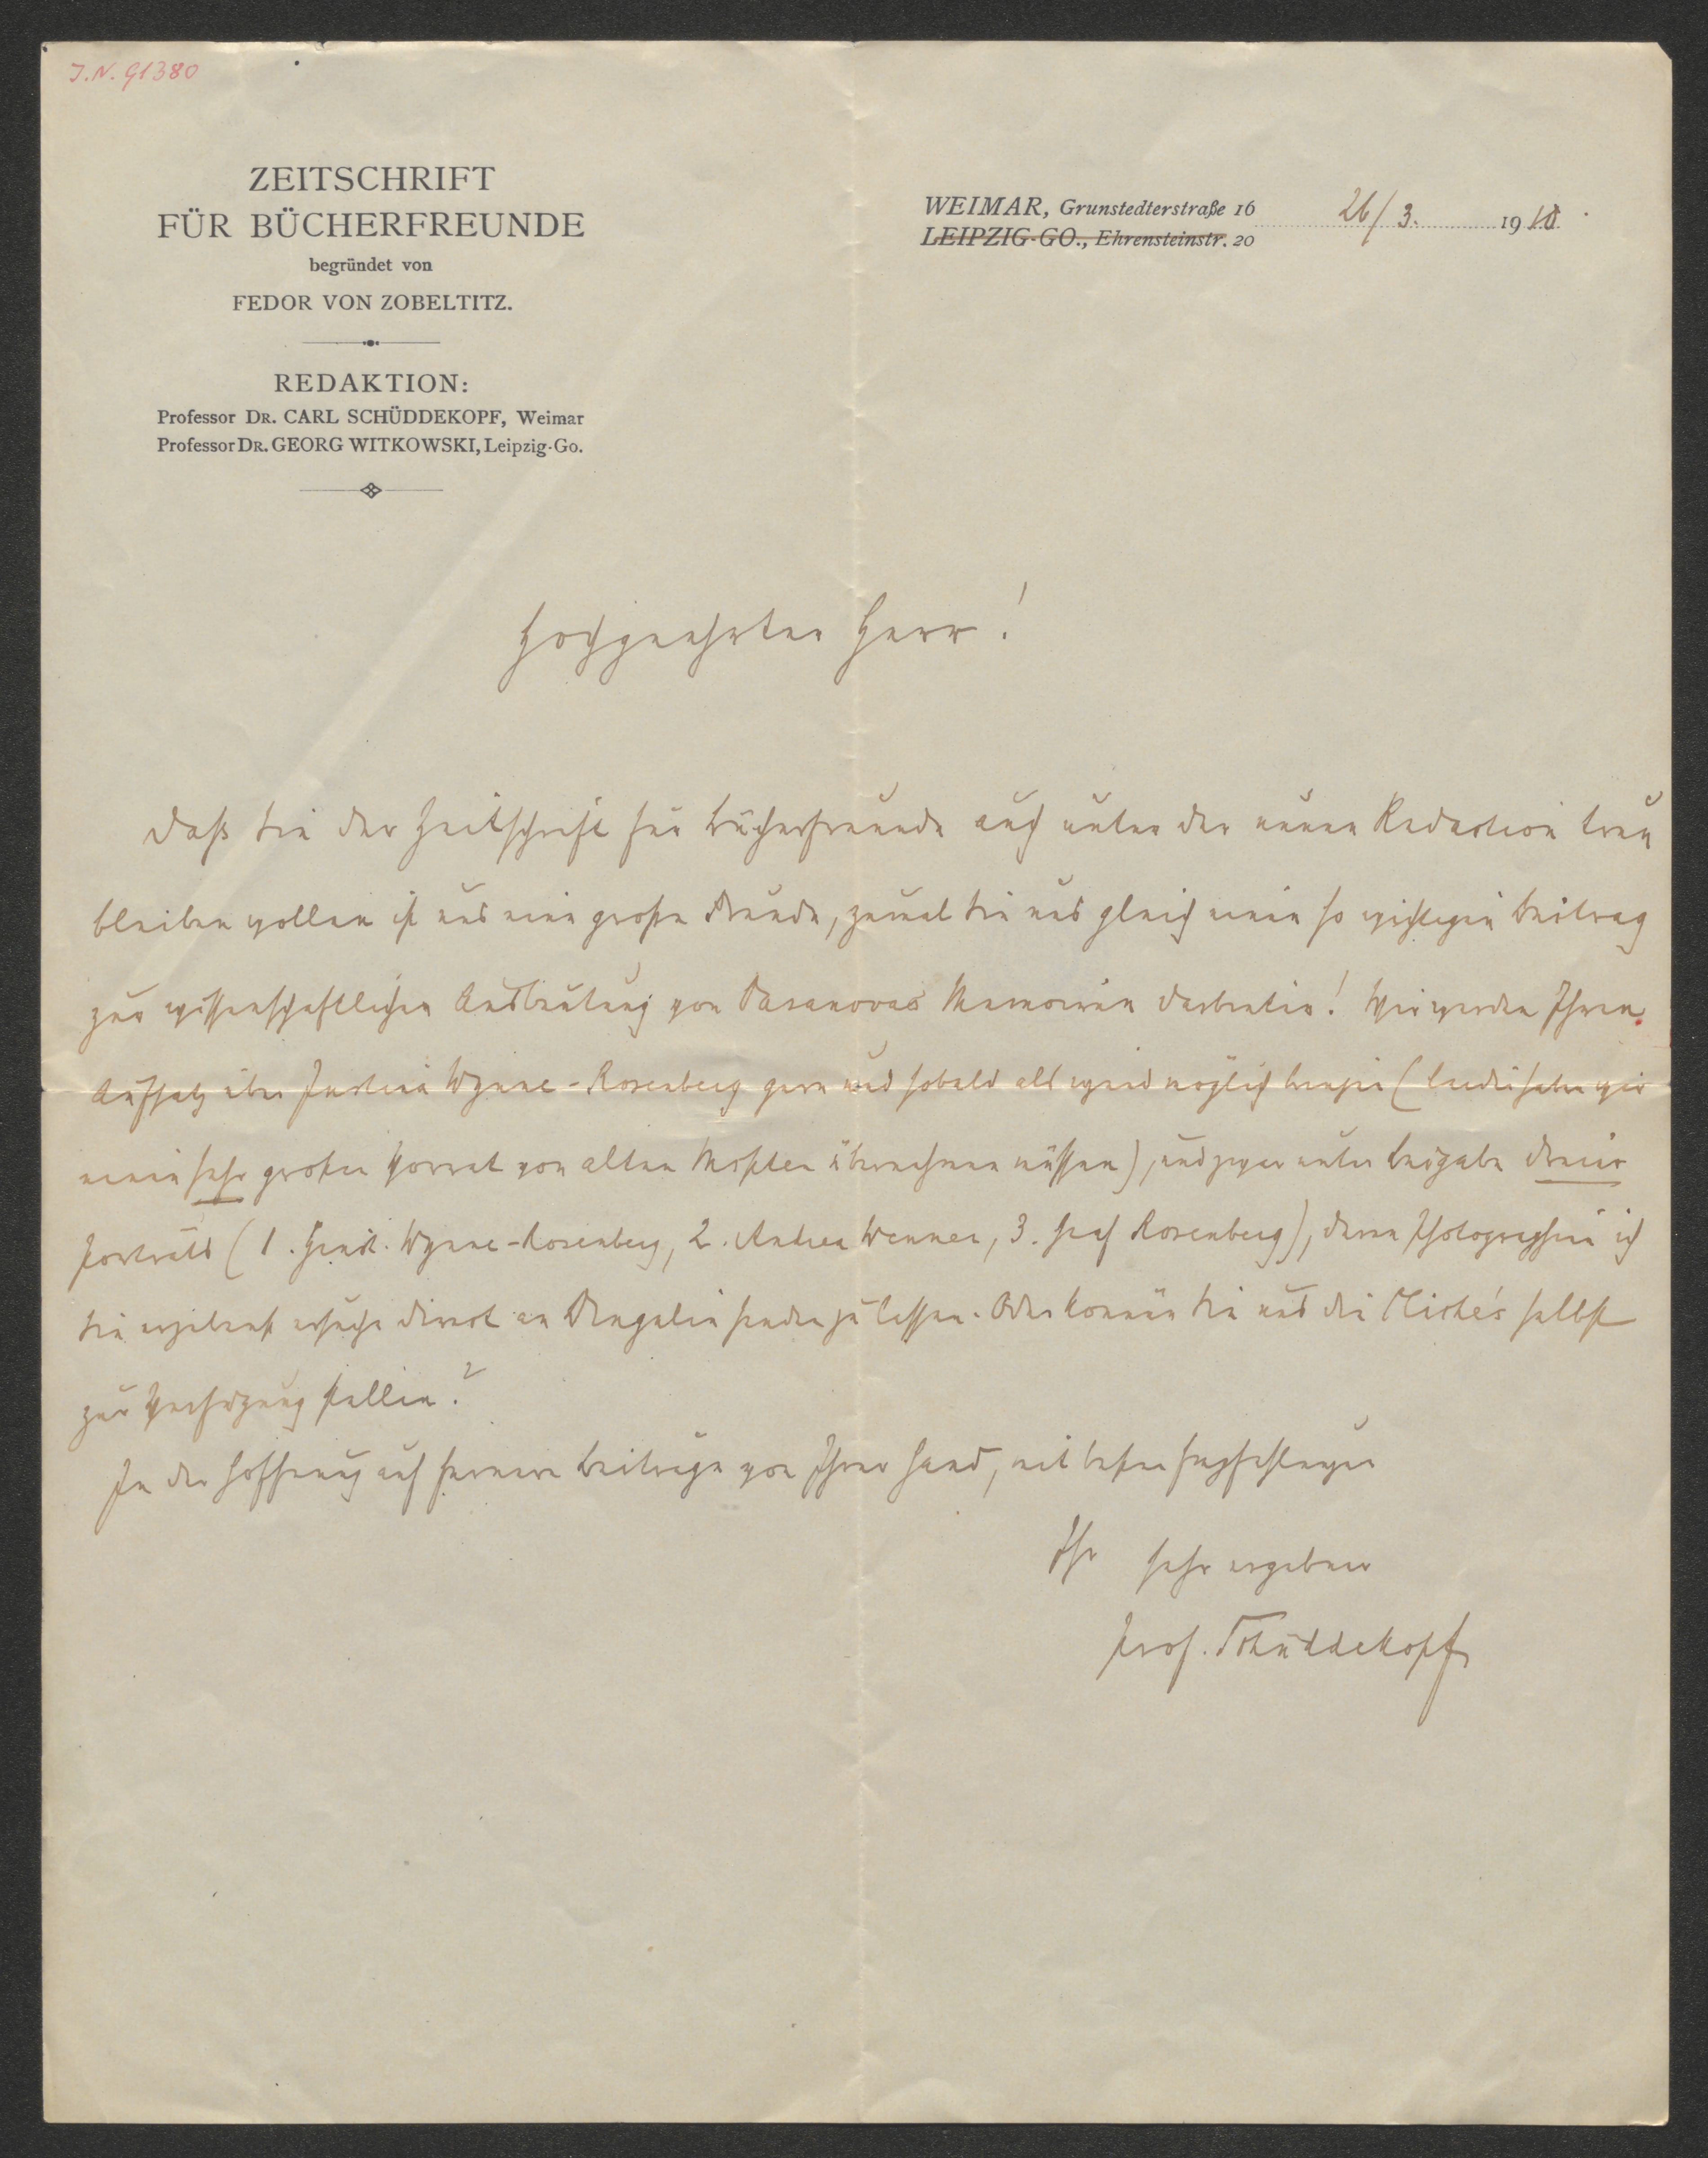 J.N. 91380
ZEITSCHRIFT
FÜR BÜCHERFREUNDE
begründet von
FEDOR VON ZOBELTITZ.
REDAKTION:
Professor DR. CARL SCHÜDDEKOPF, Weimar
Professor DR. GEORG WITKOWSKI, Leipzig-Go.
WEIMAR, Grunstedterstraße 16 26/3. 1910.
LEIPZIG-GO., Ehrensteinstr. 20
Hochgeehrter Herr!
Daß Sie der Zeitschrift für Bücherfreunde auch unter der neuen Redaction treu
bleiben wollen ist uns eine große Freude, zumal Sie uns gleich einen so wichtigen Beitrag
zur wissenschaftlichen Ausbeutung von Casanovas Memoiren darbieten! Wir werden Ihren
Aufsatz über Justina Wynne-Rosenberg gern und sobald als irgend möglich bringen (leider haben wir
einen sehr großen Vorrat von alten Mskpten übernehmen müssen), und zwar unter Beigabe dreier
Porträts (1. Wynne-Rosenberg, 2. Andrea Memmo, 3. Graf Rosenberg), deren Photographien ich
Sie ergebenst ersuche direct an Drugulin senden zu lassen. Oder können Sie uns die Cliché's selbst
zur Verfügung stellen?
In der Hoffnung auf fernere Beiträge von Ihrer Hand, mit besten Empfehlungen
Ihr sehr ergebener
Prof. Schüddekopf